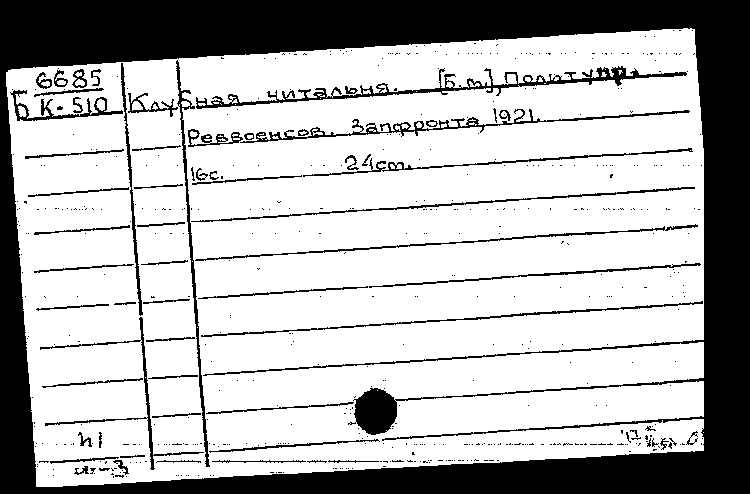 6685
Б К-510 Клубная читальня. [Б.м.], Политупр.
Реввоенсов. Запфронта, 1921.
16с. 24см.